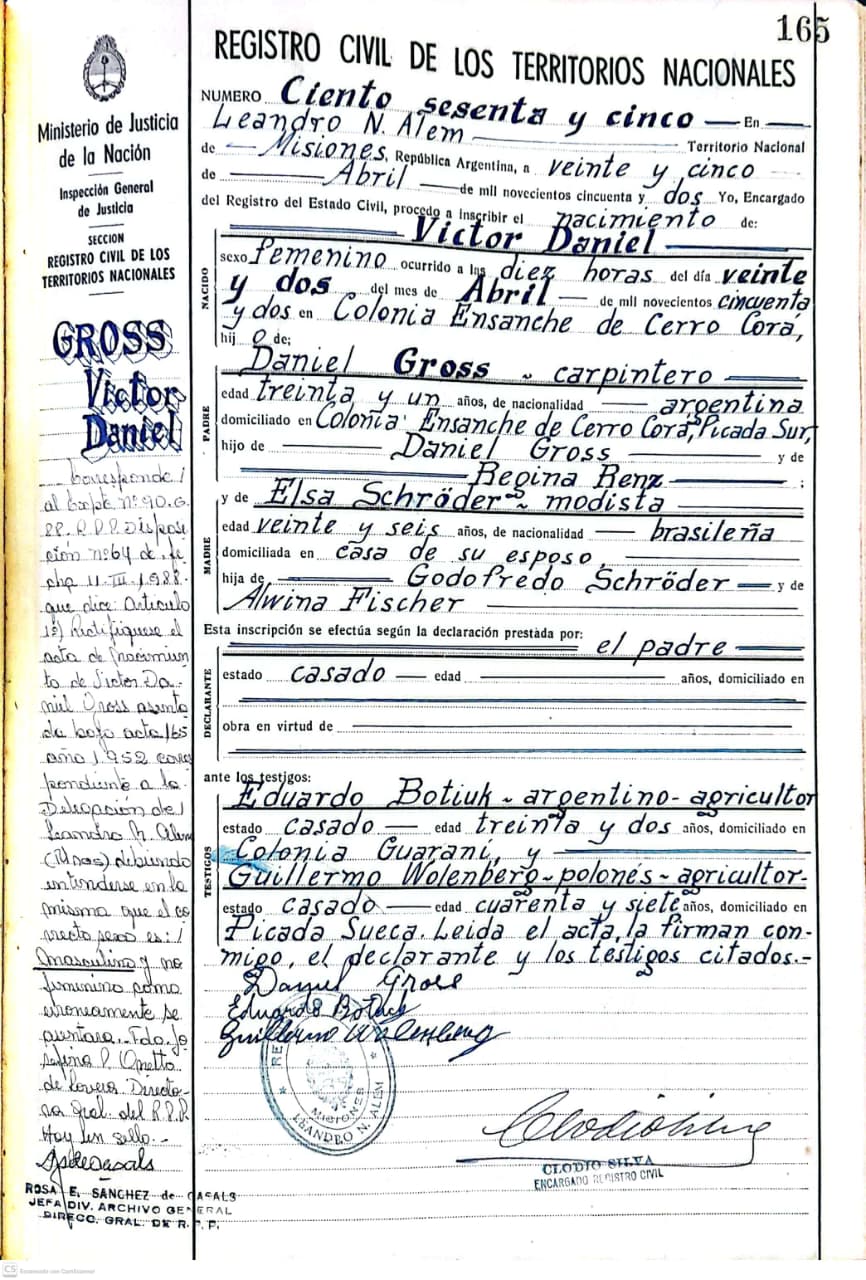 165
REGISTRO CIVIL DE LOS TERRITORIOS NACIONALES
Ministerio de Justicia
de la Nación
Inspección General
de Justicia
SECCION
REGISTRO CIVIL DE LOS
TERRITORIOS NACIONALES
GROSS
Víctor
Daniel
Corresponde
al Expte. Nº 90.G.
88, R.P.P. Dispos
ición nº 64 de fe
cha 11-III-1988.
que dice: Artículo
1º) Rectifíquese el
acta de nacimien
to de Víctor Da
niel Gross asenta
da bajo acta 165
año 1952 corres
pondiente a la
Delegación de
Leandro N. Alem
(Mnes) debiendo
entenderse en la
misma que el co
rrecto sexo es:
masculino y no
femenino como
erroneamente se
asentara. Fdo. Jo
sefina P. Onetto
de Lovera. Directo-
ra Gral. del R.P.P.
Hay un sello.-
ROSA E. SANCHEZ de CASALS
JEFA DIV. ARCHIVO GENERAL
DIREC. GRAL. DE R.P.P.
NUMERO Ciento sesenta y cinco — En —
Leandro N. Alem — Territorio Nacional
de — Misiones, República Argentina, a veinte y cinco
de — Abril — de mil novecientos cincuenta y dos Yo, Encargado
del Registro del Estado Civil, procedo a inscribir el nacimiento de:
NACIDO
Víctor Daniel
sexo femenino ocurrido a las diez horas del día veinte
y dos del mes de Abril — de mil novecientos cincuenta
y dos en Colonia Ensanche de Cerro Corá,
hij o de;
PADRE
Daniel Gross - carpintero
edad treinta y un años, de nacionalidad — argentina
domiciliado en Colonia Ensanche de Cerro Corá, Picada Sur,
hijo de — Daniel Gross — y de
Regina Renz — ;
MADRE
y de Elsa Schröder - modista
edad veinte y seis años, de nacionalidad — brasileña
domiciliada en casa de su esposo,
hija de — Godofredo Schröder — y de
Alwina Fischer
Esta inscripción se efectúa según la declaración prestada por:
DECLARANTE
el padre
estado casado — edad — años, domiciliado en
obra en virtud de
ante los testigos:
TESTIGOS
Eduardo Botiuk - argentino - agricultor
estado casado — edad treinta y dos años, domiciliado en
Colonia Guaraní, y
Guillermo Wolenberg - polonés - agricultor-
estado casado — edad cuarenta y siete años, domiciliado en
Picada Sueca. Leída el acta, la firman con-
migo, el declarante y los testigos citados.-
Daniel Gross
Eduardo Botiuk
Guillermo Wolenberg
MISIONES
LEANDRO N. ALEM
CLODIO SILVA
ENCARGADO REGISTRO CIVIL
CS Escaneado con CamScanner